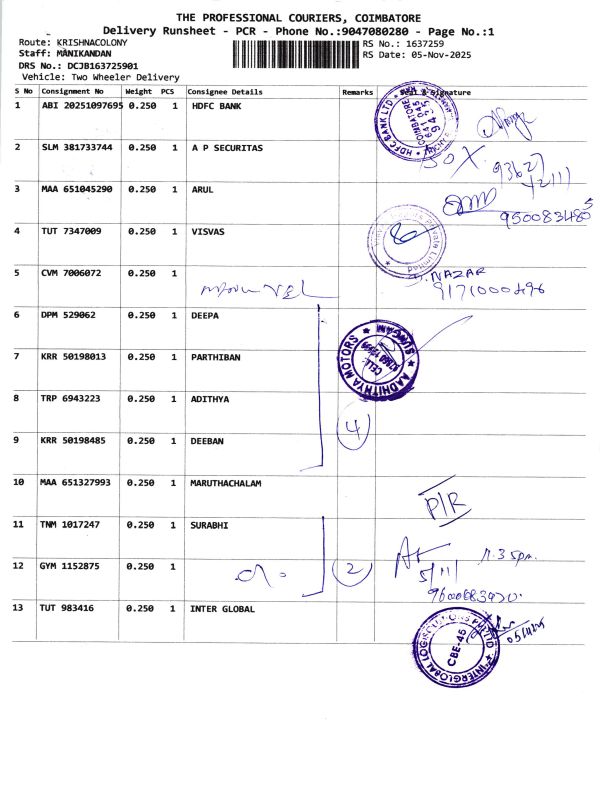 THE PROFESSIONAL COURIERS, COIMBATORE
Delivery Runsheet - PCR - Phone No.:9047080280 - Page No.:1
Route: KRISHNACOLONY
Staff: MANIKANDAN
DRS No.: DCJB163725901
Vehicle: Two Wheeler Delivery
RS No.: 1637259
RS Date: 05-Nov-2025
S No Consignment No Weight PCS Consignee Details Remarks & Signature
1 ABI 20251097695 0.250 1 HDFC BANK
HDFC BANK LTD COIMBATORE 641 045
2 SLM 381733744 0.250 1 A P SECURITAS
3 MAA 651045290 0.250 1 ARUL
4 TUT 7347009 0.250 1 VISVAS
Private Limited
5 CVM 7006072 0.250 1
NAZAR
6 DPM 529062 0.250 1 DEEPA
7 KRR 50198013 0.250 1 PARTHIBAN
AADHITHYA MOTORS SUNGAM
CELL:
8 TRP 6943223 0.250 1 ADITHYA
4
9 KRR 50198485 0.250 1 DEEBAN
10 MAA 651327993 0.250 1 MARUTHACHALAM
P/R
11 TNM 1017247 0.250 1 SURABHI
12 GYM 1152875 0.250 1
2
5/11
13 TUT 983416 0.250 1 INTER GLOBAL
INTERGLOBAL LOGISOLUTIONS PVT LTD
CBE-45